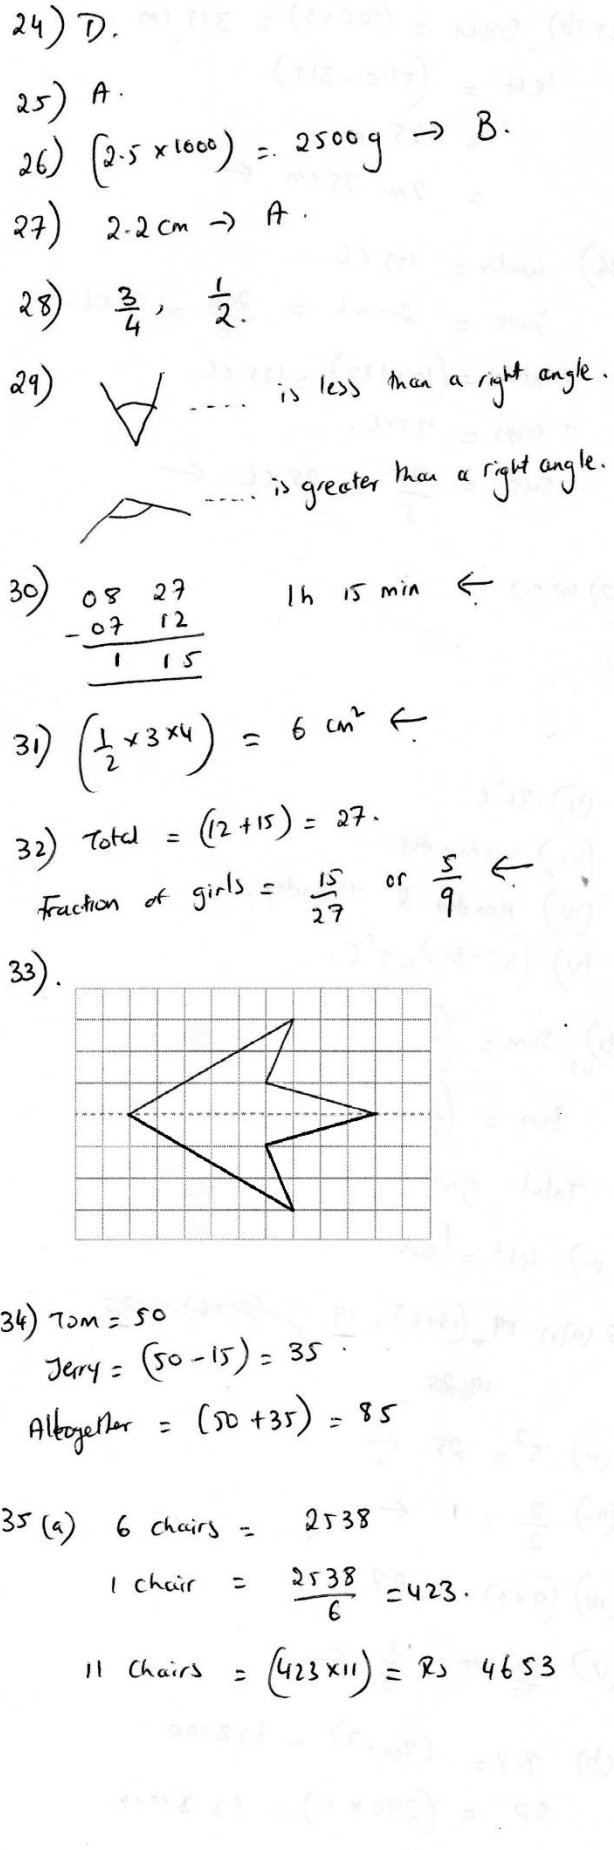 24) D.
25) A.
26) (2.5 × 1000) = 2500g → B.
27) 2.2 cm → A.
28) 3/4, 1/2.
29) .... is less than a right angle.
.... is greater than a right angle.
30) 08 27
- 07 12
1 15
1h 15 min ←
31) (1/2 × 3 × 4) = 6 cm² ←
32) Total = (12 + 15) = 27.
Fraction of girls = 15/27 or 5/9 ←
33).
34) Tom = 50
Jerry = (50 - 15) = 35.
Altogether = (50 + 35) = 85
35 (a) 6 chairs = 2538
1 chair = 2538/6 = 423.
11 chairs = (423 × 11) = Rs 4653